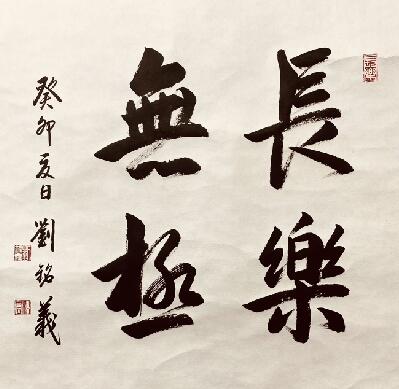 長樂
無極
癸卯夏日劉銘義